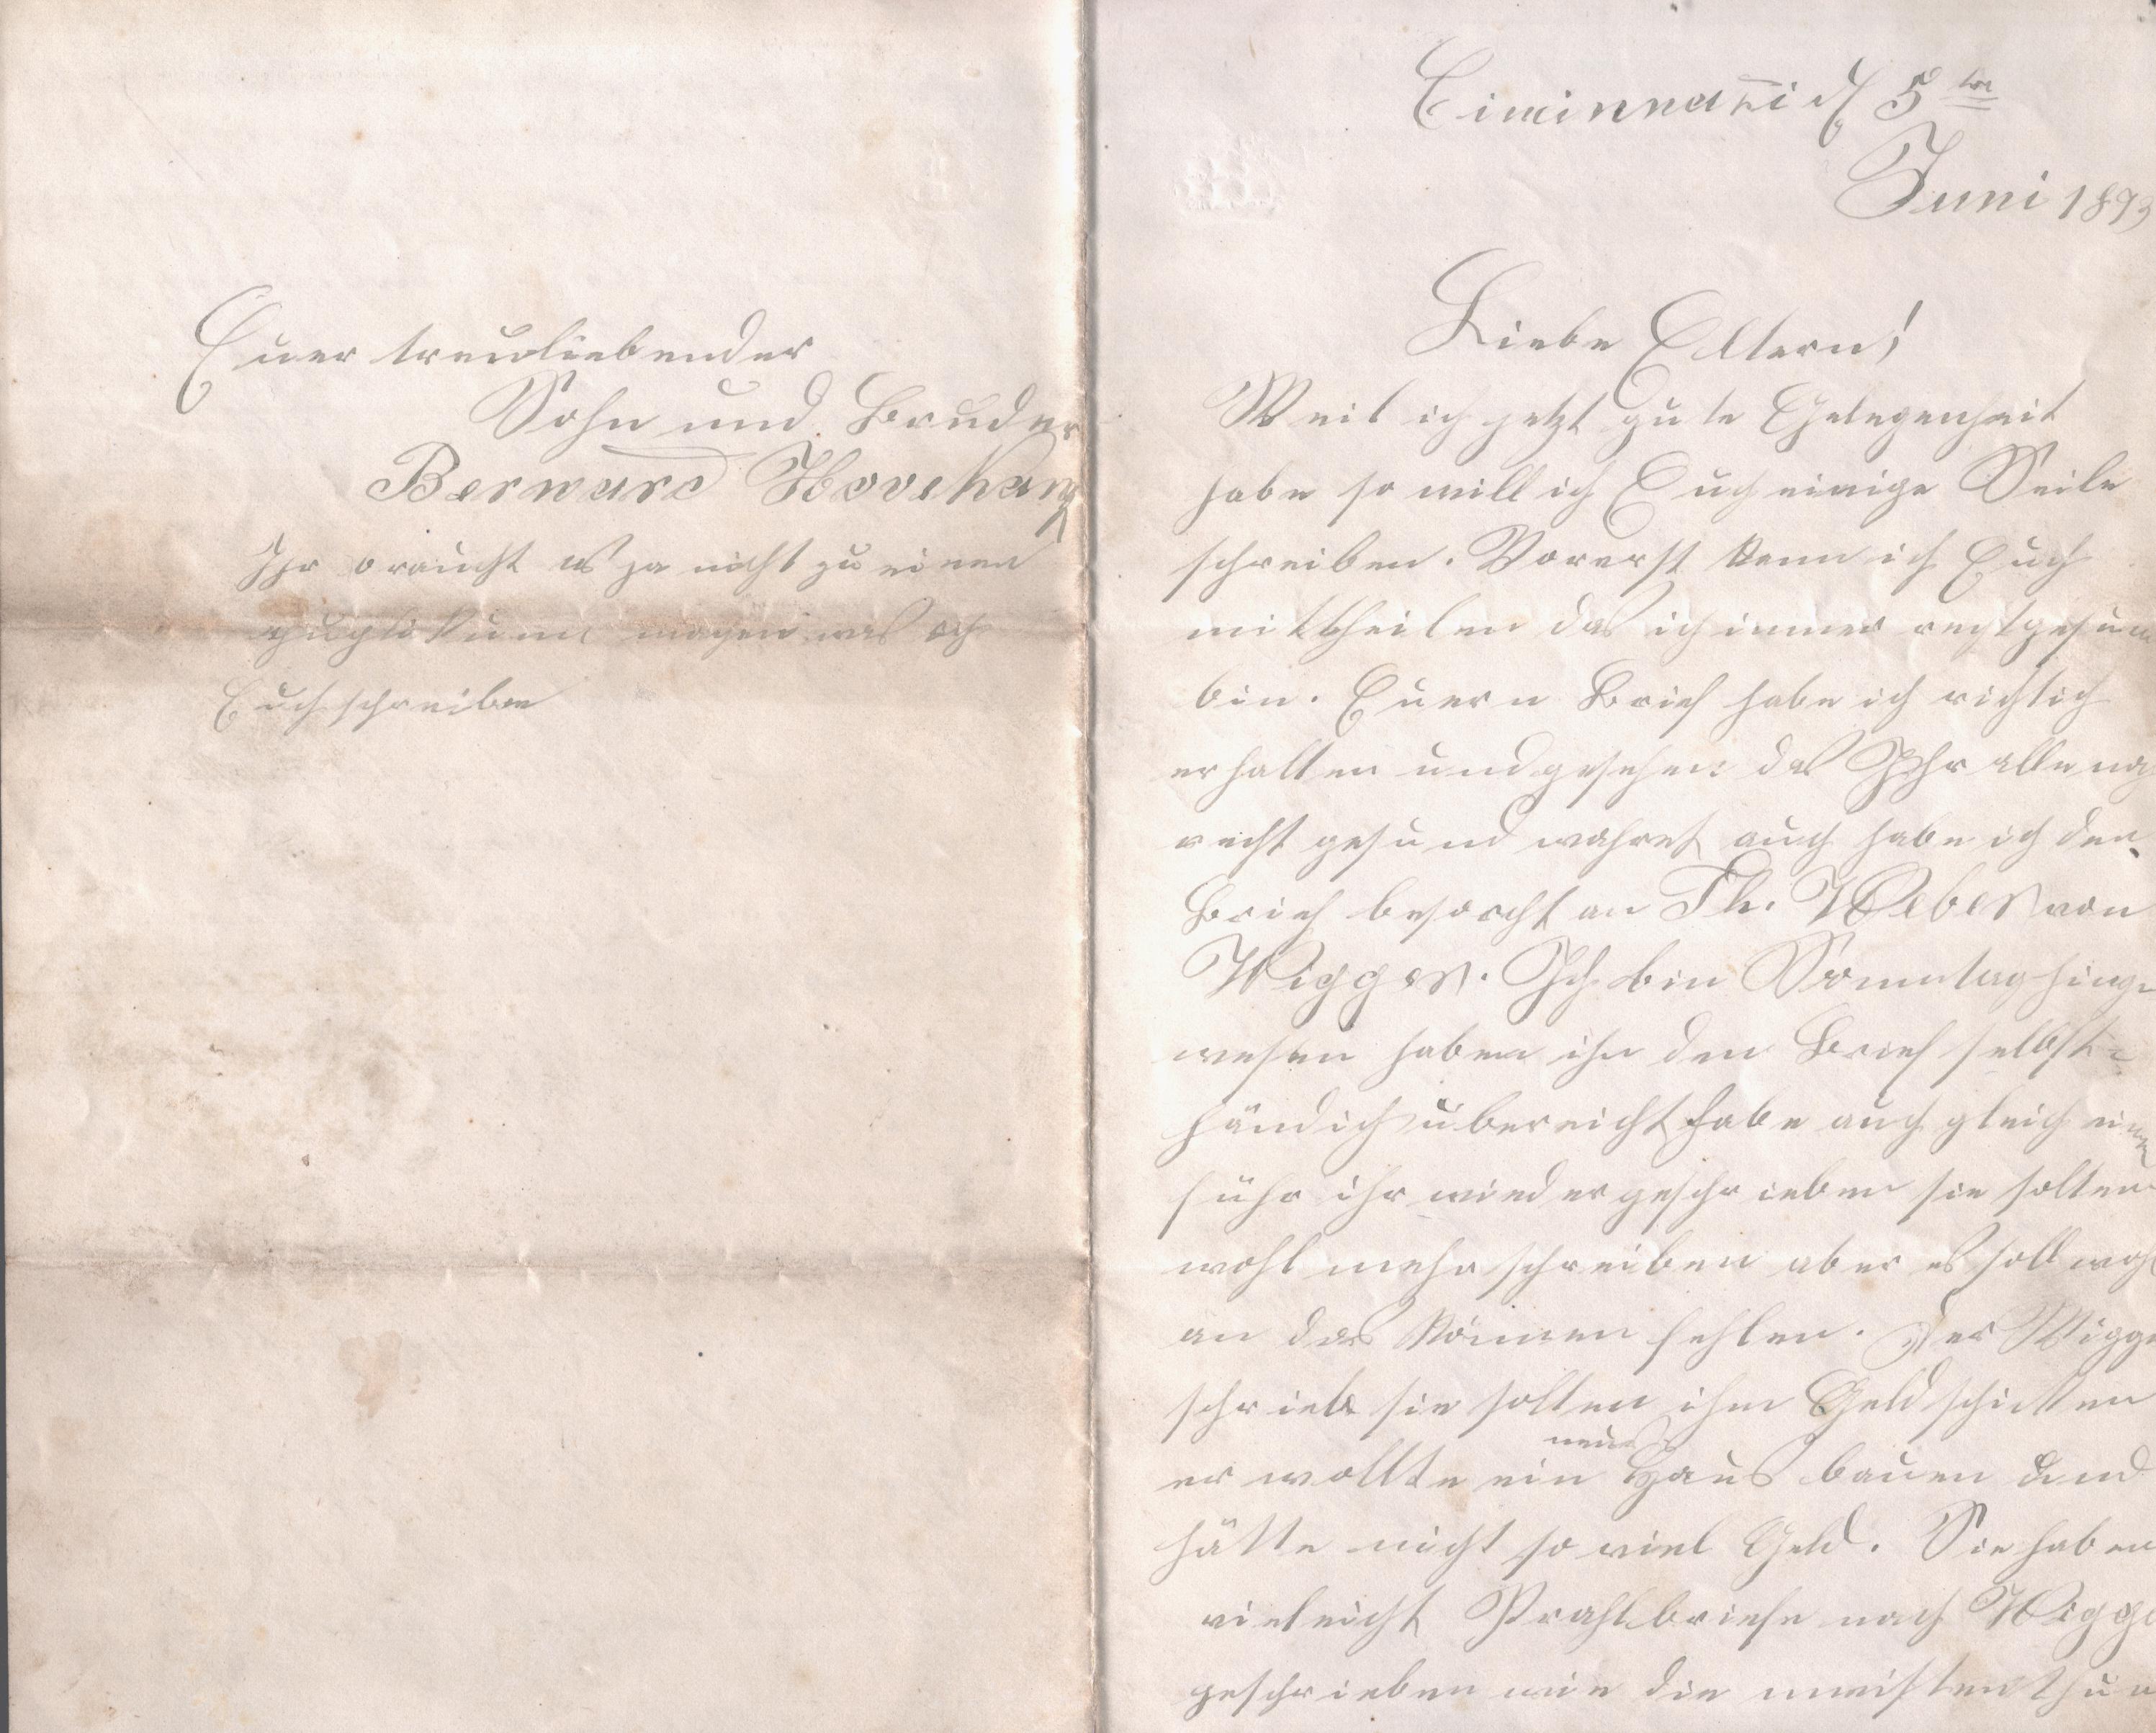 Euer treuliebender
Sohn und Bruder
Bernard Hovekamp
Ihr braucht es ja nicht zu einen
machen was ich
Euch schreibe
Cincinnati d 5ten
Juni 1893
Liebe Eltern!
Weil ich jetzt gute Gelegenheit
habe so will ich Euch einige Zeile
schreiben. Vorerst kann ich Euch
mittheilen das ich immer recht gesund
bin. Euern Brief habe ich richtich
erhalten und gesehen das Ihr alle noch
recht gesund wahret auch habe ich den
Brief besorcht an Th. Weber von
Wigger. Ich bin Sonntag hinge
wesen haben ihn den Brief selbst-
händich übereicht habe auch gleich einen
führ ihr wieder geschrieben sie solten
wohl mehr schreiben aber es soll wohl
an das können fehlen. Der Wigger
schrieb sie solten ihm Geld schicken
er wollte ein neues Haus bauen und
hätte nicht so viel Geld. Sie haben
vieleicht Prahlbriefe nach Wigger
geschrieben wie die meisten thun